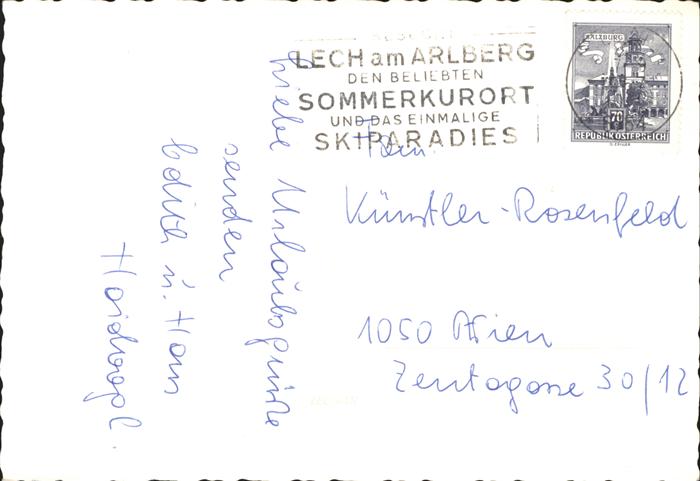 LECH am ARLBERG
DEN BELIEBTEN
SOMMERKURORT
UND DAS EINMALIGE
SKIPARADIES
SALZBURG
70
REPUBLIK ÖSTERREICH
Liebe Urlaubsgrüße
senden
Edith u. Hans
Haidvogl.
Fam.
Künstler-Rosenfeld
1050 Wien
Zentagasse 30/12